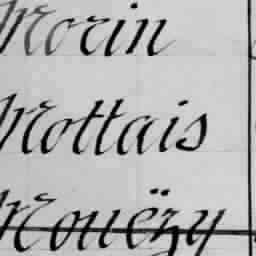 Morin
Mottais
Mouëzy